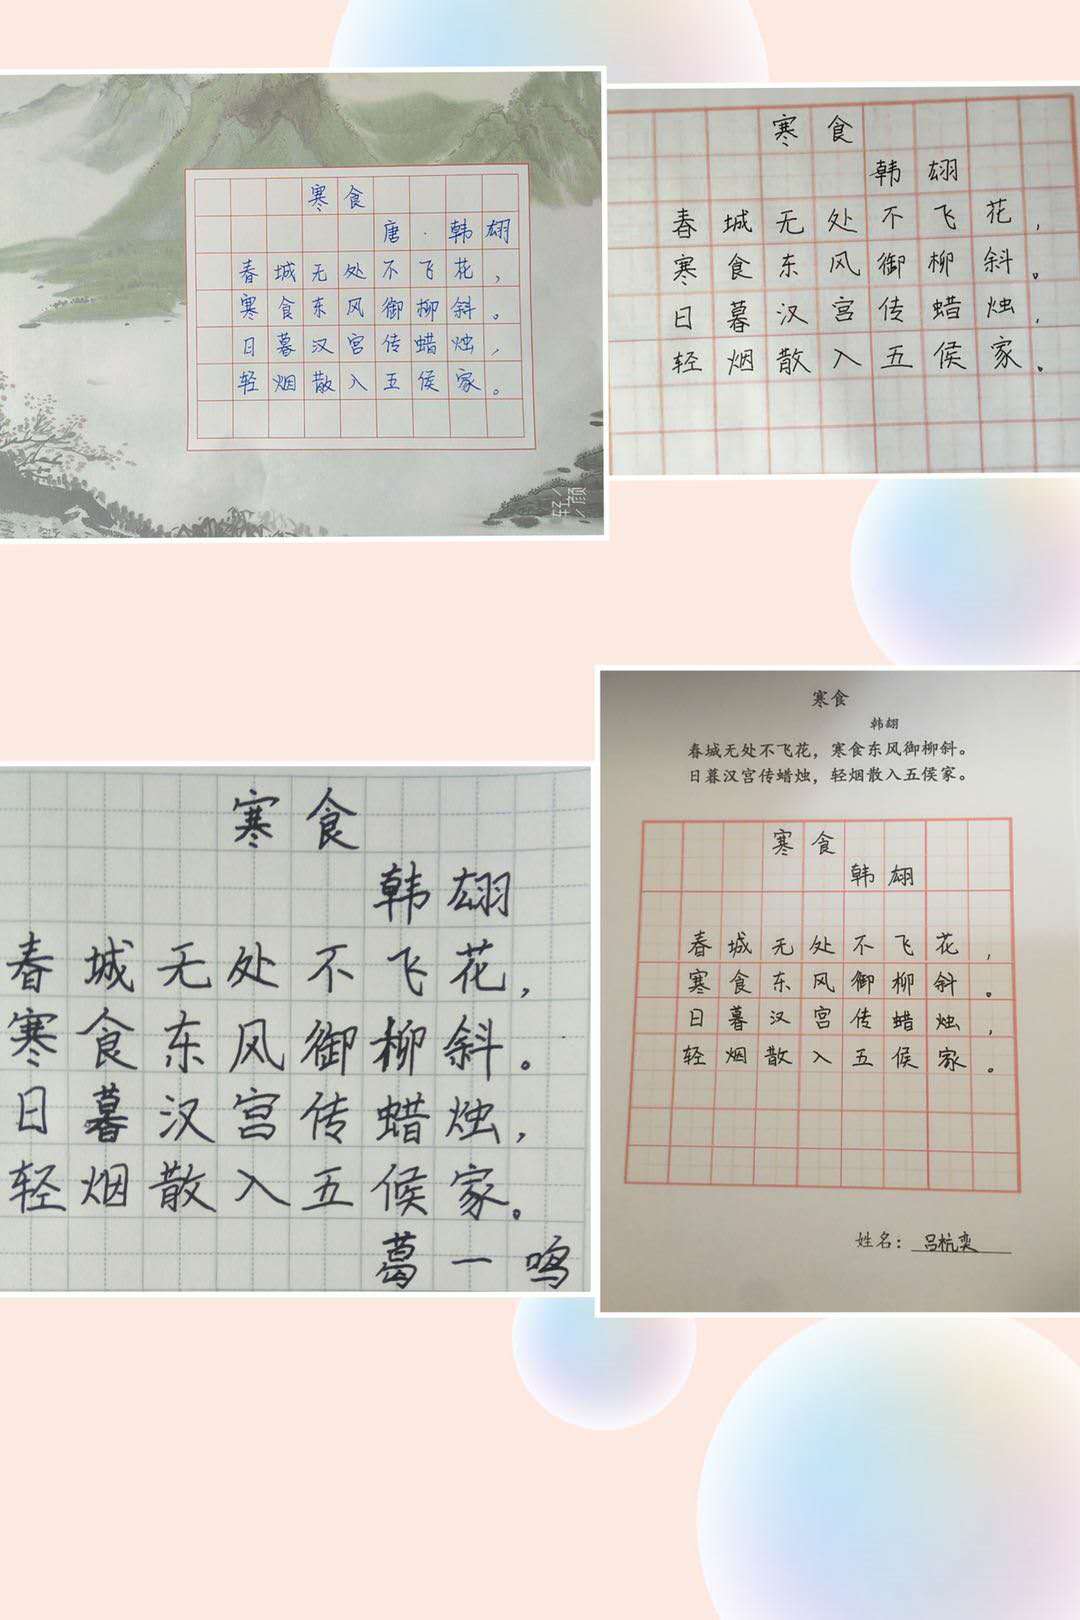 寒食
唐·韩翃
春城无处不飞花，
寒食东风御柳斜。
日暮汉宫传蜡烛，
轻烟散入五侯家。
轻颜
寒食
韩翃
春城无处不飞花，
寒食东风御柳斜。
日暮汉宫传蜡烛，
轻烟散入五侯家。
寒食
韩翃
春城无处不飞花，
寒食东风御柳斜。
日暮汉宫传蜡烛，
轻烟散入五候家。
葛一鸣
寒食
韩翃
春城无处不飞花，寒食东风御柳斜。
日暮汉宫传蜡烛，轻烟散入五侯家。
寒食
韩翃
春城无处不飞花，
寒食东风御柳斜。
日暮汉宫传蜡烛，
轻烟散入五侯家。
姓名：吕杭奕